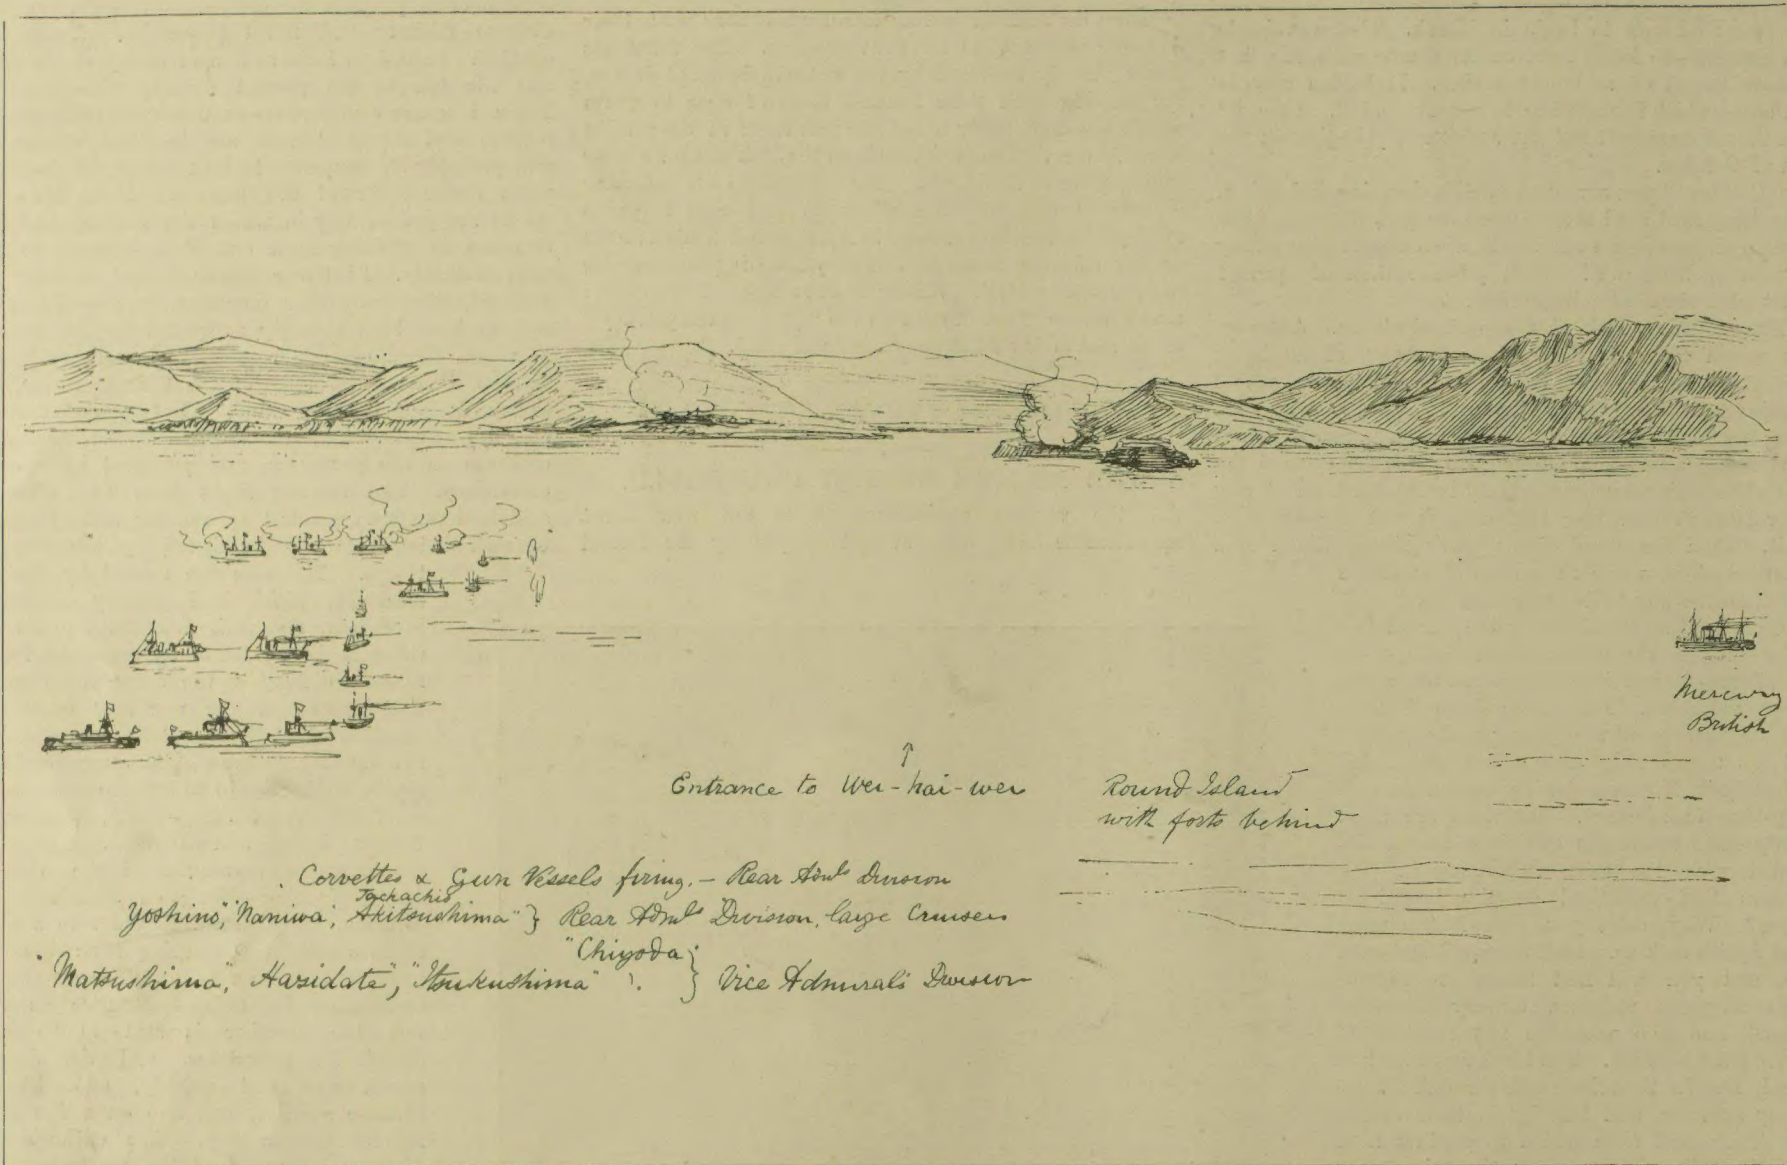 Mercury
British
Entrance to Wei-hai-wei
Round Island
with forts behind
Corvettes & Gun Vessels firing. – Rear Adml's Division
Tackachio
Yoshino", "Naniwa", Akitsushima" } Rear Adml's Division, large Cruisers
"Chiyoda"
"Matsushima", Hasidate", "Itsukushima" } Vice Admiral's Division